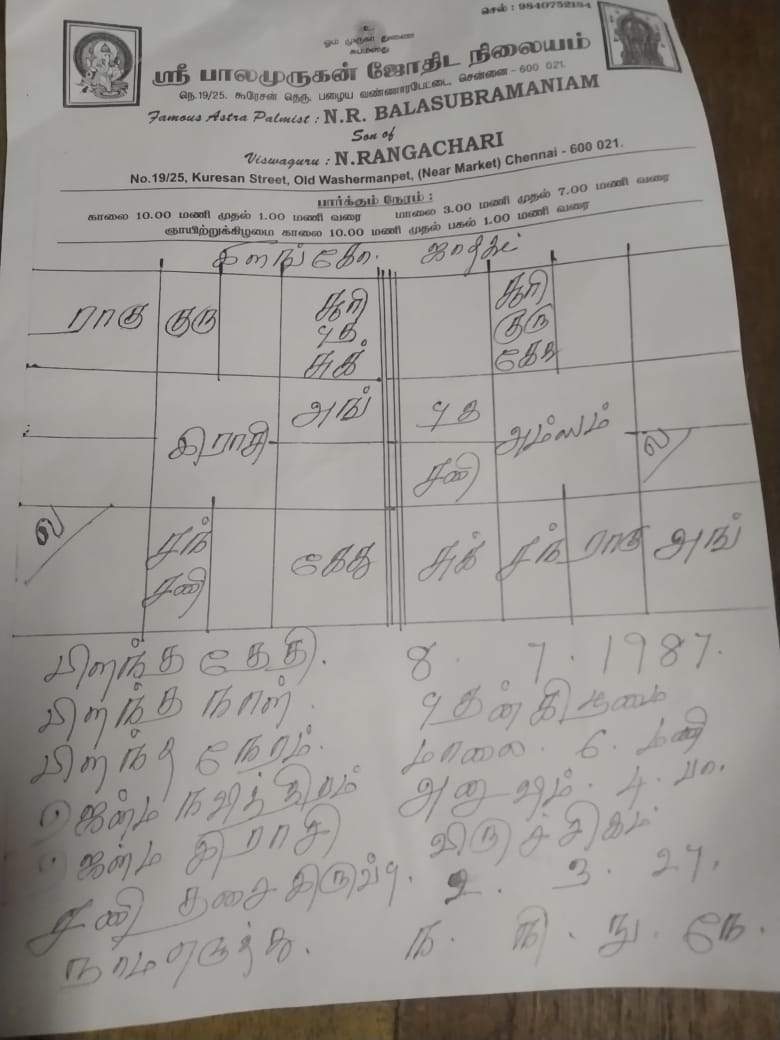 செல் : 9840752184
உ
ஓம் முருகா துணை
சுபமஸ்து
ஸ்ரீ பாலமுருகன் ஜோதிட நிலையம்
நெ.19/25. கூரேசன் தெரு, பழைய வண்ணாரபேட்டை, சென்னை - 600 021.
Famous Astra Palmist : N.R. BALASUBRAMANIAM
Son of
Viswaguru : N.RANGACHARI
No.19/25, Kuresan Street, Old Washermanpet, (Near Market) Chennai - 600 021.
பார்க்கும் நேரம் :
காலை 10.00 மணி முதல் 1.00 மணி வரை மாலை 3.00 மணி முதல் 7.00 மணி வரை
ஞாயிற்றுக்கிழமை காலை 10.00 மணி முதல் பகல் 1.00 மணி வரை
இளங்கோ. ஜாதகம்
ராகு குரு சூரி சூரி
புத குரு
சுக் கேது
அங் புத அம்சம்
இராசி சனி ல
ல சந் கேது சுக் சந் ராகு அங்
சனி
பிறந்த தேதி. 8. 7. 1987.
பிறந்த நாள். புதன்கிழமை
பிறந்த நேரம். மாலை. 6. மணி
ஜன்ம நஷித்திரம் அனுஷம். 4. பா.
ஜன்ம இராசி விருச்சிகம்.
சனி தசை இருப்பு. 2. 3. 27.
நாம எழுத்து. ந. நி. நு. நே.